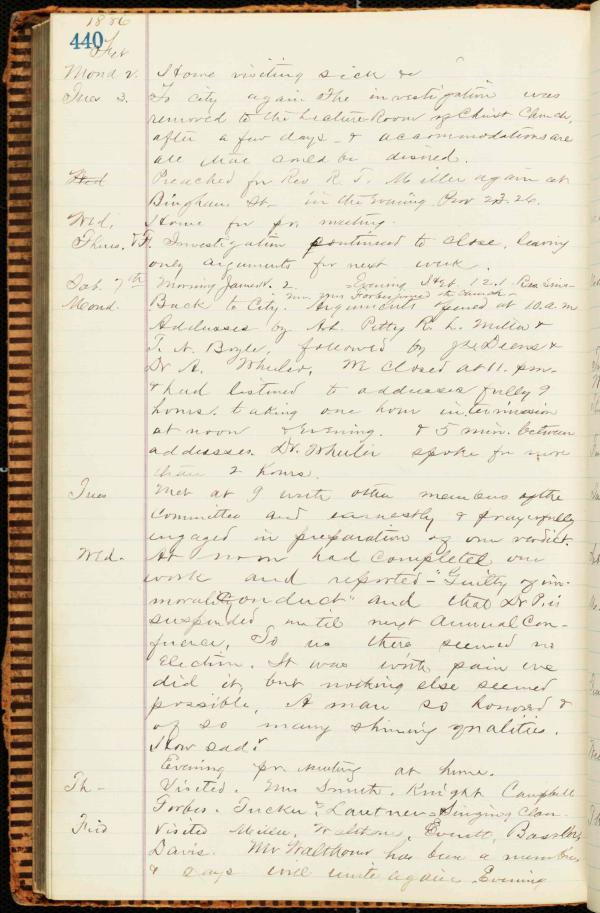 1886
440
Feb
Mond 2. Home visiting sick &c
Tues 3. To city again. The investigation was
removed to the Lecture Room of Christ Church,
after a few days - & accommodations are
all that could be desired.
Wed Preached for Rev R. T. Miller again at
Bingham St. in the evening Prov 23.26.
Wed, Home for pr. meeting.
Thurs. & F. Investigation continued to close, leaving
only arguments for next week.
Sab. 7th Morning James 1. 2. Evening
Mr, Mrs Forbes joined the church
Mond. Back to City. Arguments opened at 10. a.m
Addresses by At. Petty R. L. Miller &
T. N. Boyle, followed by &
Dr A. Wheeler, We closed at 11. p.m.
& had listened to addresses fully 9
hours, taking one hour intermission
at noon & evening. & 5 min. between
addresses. Dr. Wheeler spoke for more
than 2 hours.
Tues Met at 9 with other members of the
Committee and earnestly & prayerfully
engaged in preparation of our verdict.
Wed. At noon had completed our
work and reported - "Guilty of im-
moral conduct" and that Dr P. is
suspended until next Annual Con-
ference, To us there seemed no
election. It was with pain we
did it, but nothing else seemed
possible, A man so honored &
of so many shining qualities.
How sad!
Evening pr. meeting at home.
Th - Visited. Mrs Smith, Knight Campbell
Forbes. Tucker, Lautner Singing Class.
Frid Visited Miller, Everitt,
Davis. Mr Walthour has been a member
& says will unite again. Evening